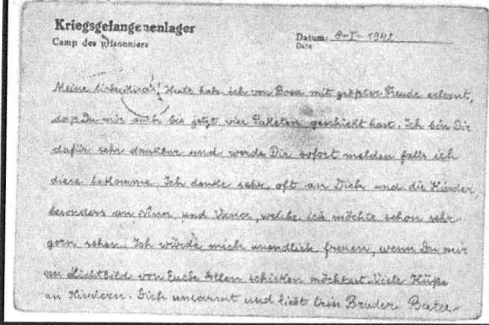 Kriegsgefangenenlager
Camp des prisonniers
Datum: 8-I-1942
Date
Meine liebe ! Heute habe ich von Bosa mit grösster Freude erlernt,
dass Du mir auch bis jetzt vier Paketen geschickt hast. Ich bin Dir
dafür sehr dankbar und werde Dir sofort melden falls ich
diese bekomme. Ich denke sehr oft an Dich und die Kinder,
besonders an und , welche ich möchte schon sehr
gern sehen. Ich würde mich unendlich freuen, wenn Du mir
ein Lichtbild von Euch Allen schicken möchtest. Viele Küsse
an Kindern. Dich umarmt und liebt Dein Bruder